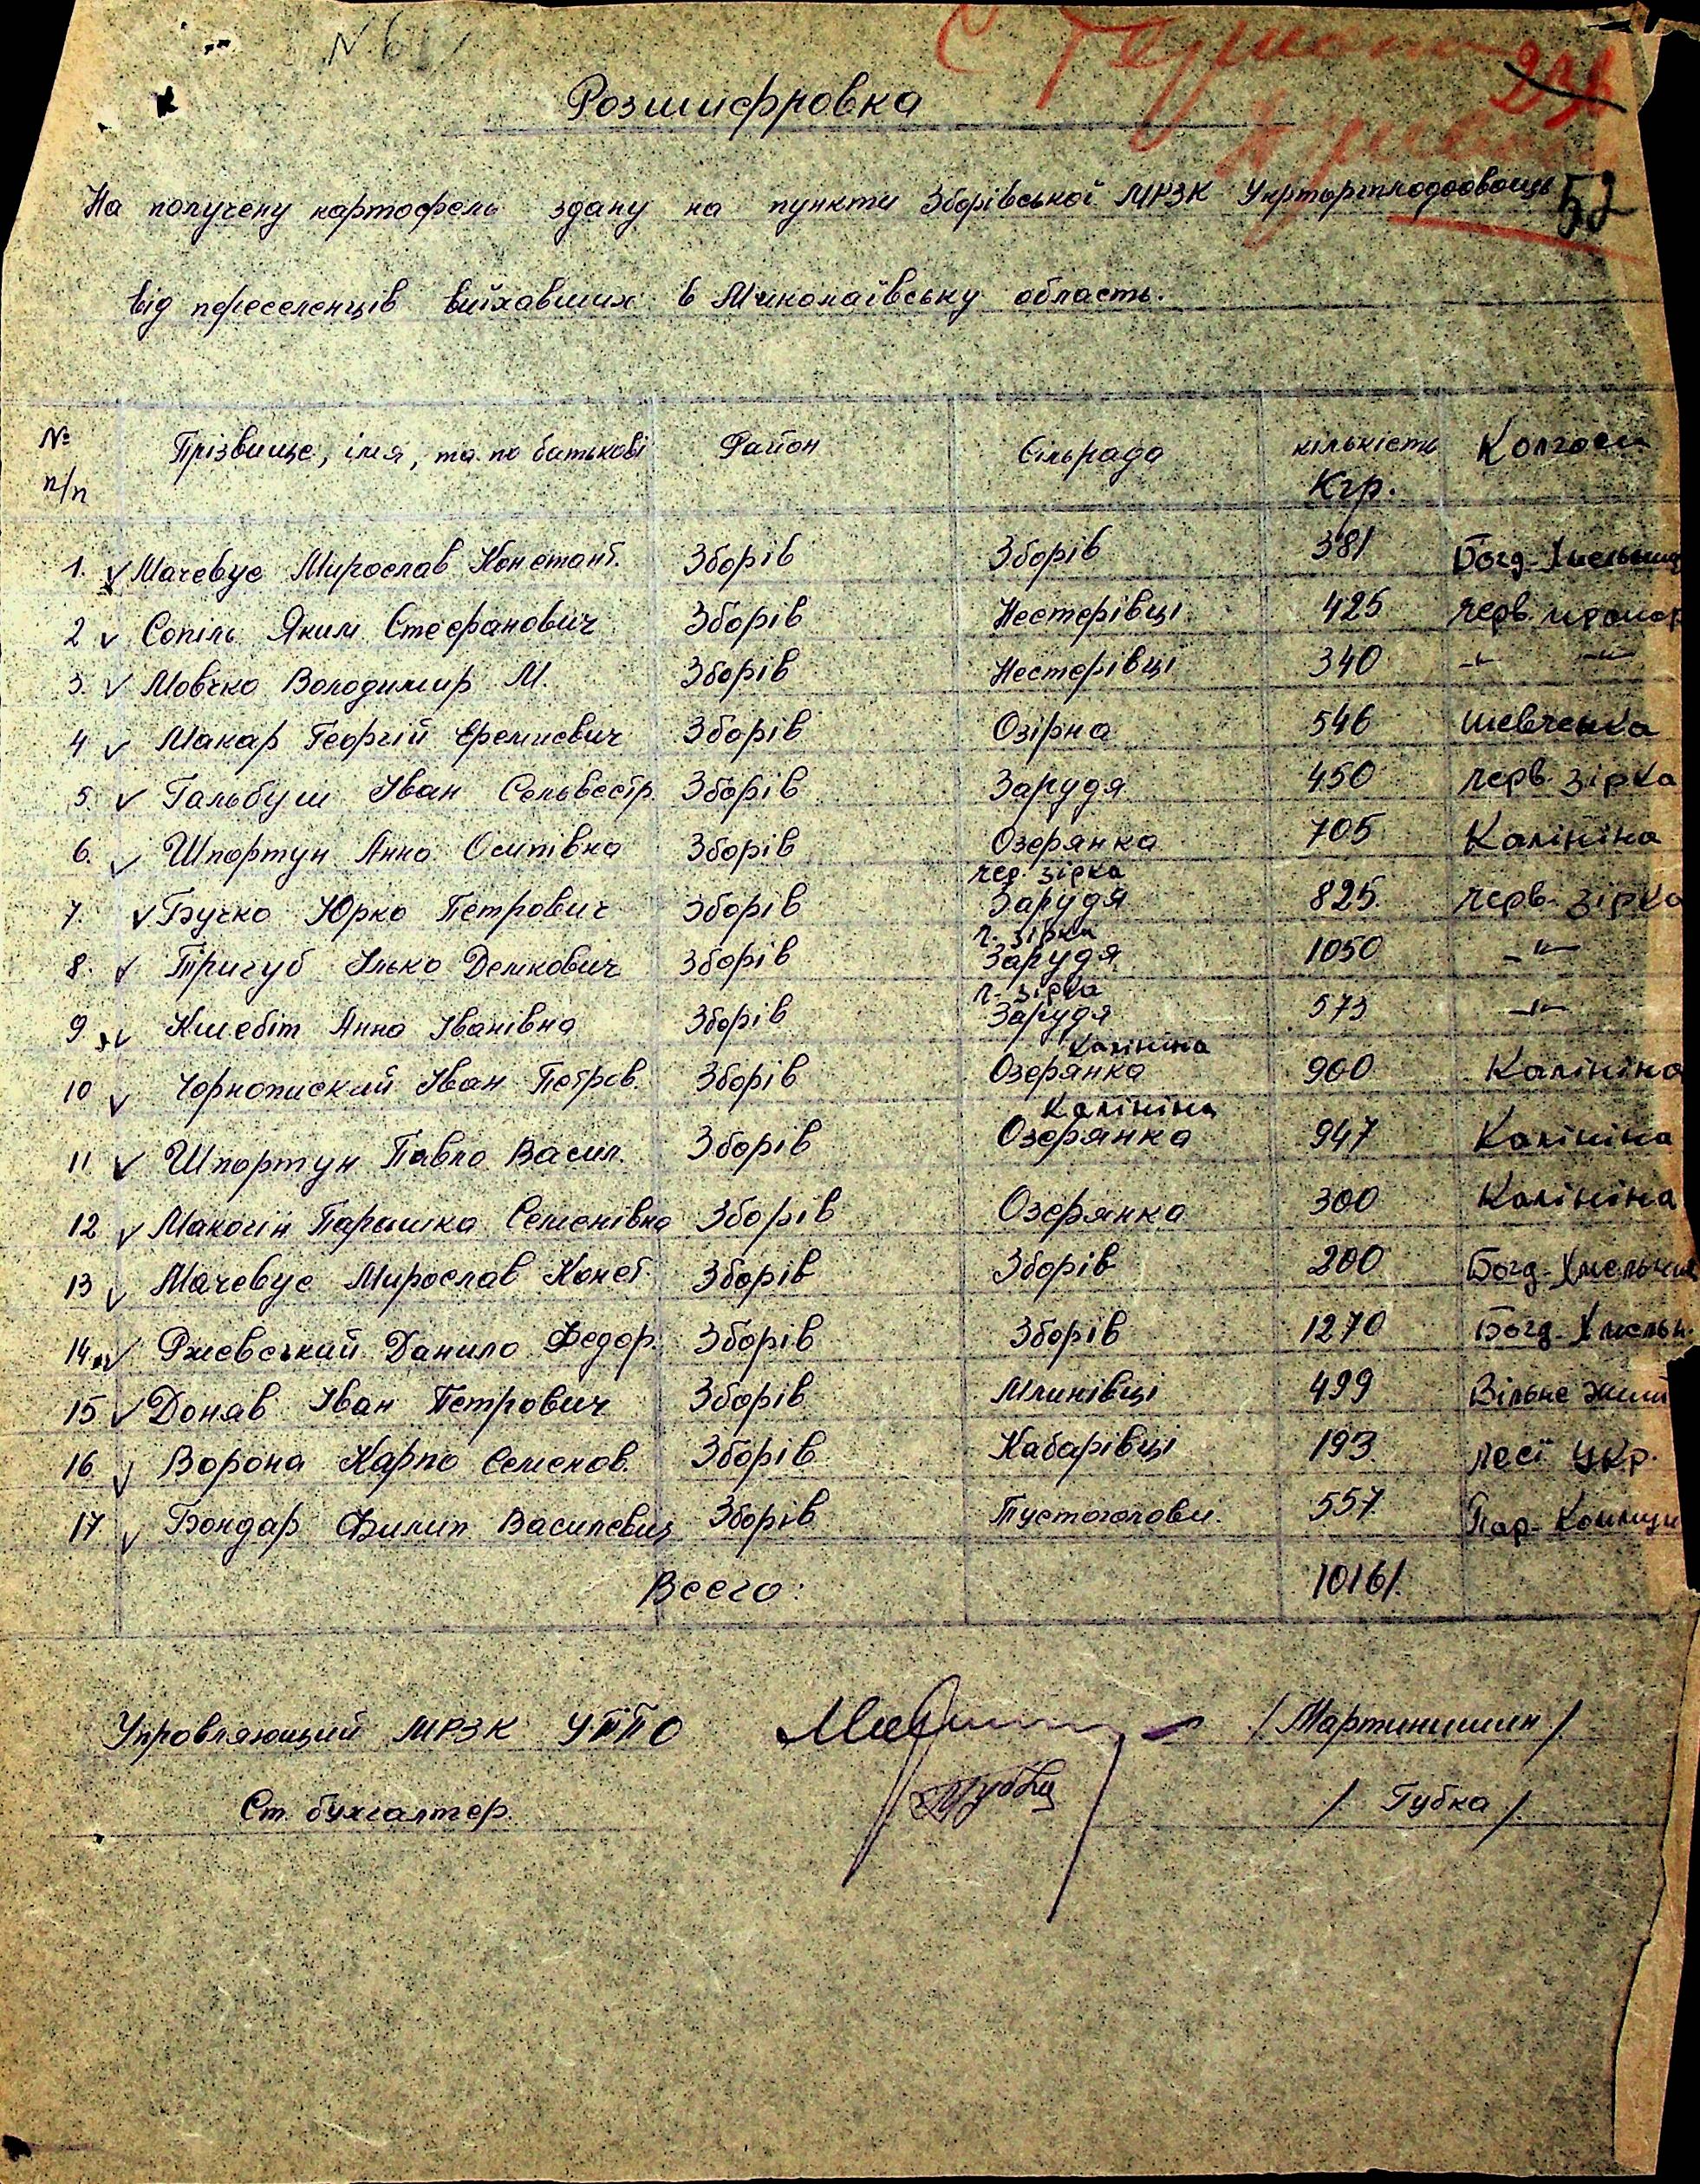 N 61
Розшифровка
52
На получену картофель здану на пункти Зборівської МРЗК Укрторгплодоовощь
від переселенців виїхавших в Миколаївську область.
№ п/п Прізвище, імя, та по батькові Район Сільрада кількість Кгр. Колгосп
1. Мачевус Мирослав Констант. Зборів Зборів 381 Богд-Хмельниц
2 Сопіль Яким Стефанович Зборів Нестерівці 425 черв. прапор
3. Мовчко Володимир М. Зборів Нестерівці 340 -"- -"-
4 Макар Георгій Еремиевич Зборів Озірна 546 Шевченка
5. Гальбуш Іван Сельвестр. Зборів Зарудя 450 черв. зірка
6. Шпортун Анна Осипівна Зборів Озерянка 705 Калініна
чер. зірка
7. Бучко Юрко Петрович Зборів Зарудя 825. черв. зірка
ч. зірка
8. Тригуб Ілько Демкович Зборів Зарудя 1050 -"-
ч. зірка
9 Кшебіт Анна Іванівна Зборів Зарудя 573 -"-
Калініна
10 Чорнопиский Іван Петров. Зборів Озерянка 900 Калініна
Калініна
11 Шпортун Павло Васил. Зборів Озерянка 947 Калініна
12 Макогін Парашка Семенівна Зборів Озерянка 300 Калініна
13 Мачевус Мирослав Конст. Зборів Зборів 200 Богд-Хмельни
14 Ржевський Данило Федор. Зборів Зборів 1270 Богд-Хмельн.
15 Доняв Іван Петрович Зборів Млинівці 499 Вільне Житт
16 Ворона Карпо Семенов. Зборів Кабарівці 193. Лесі Укр.
17 Бондар Филип Василевич Зборів Пустоголови. 557. Пар-Комуни
Всего: 10161.
Управляющий МРЗК УТПО /Мартинишин/
Ст. бухгалтер. / Губка /.